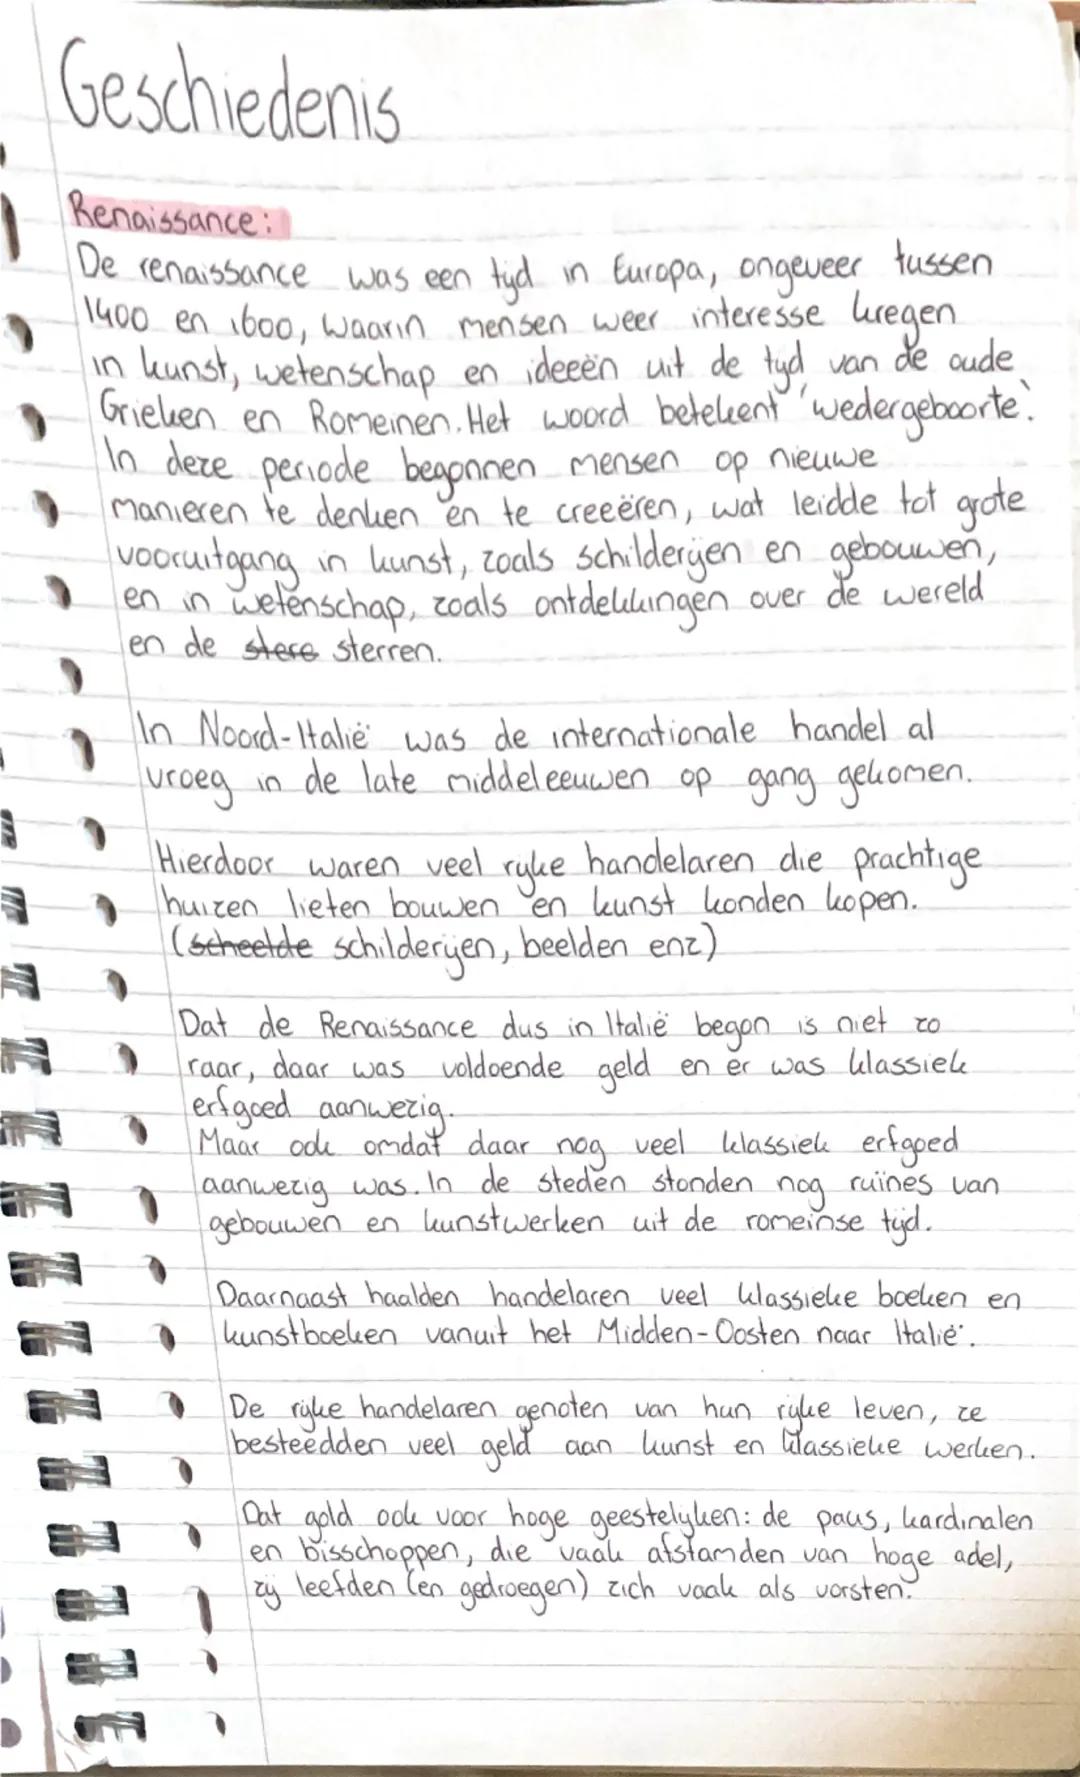 Geschiedenis
Renaissance:
De renaissance was een tijd in Europa, ongeveer tussen
1400 en 1600, waarin mensen weer interesse kregen
in kunst, wetenschap en ideeën uit de tijd van de oude
Grieken en Romeinen. Het woord betekent 'wedergeboorte'.
In deze periode begonnen mensen op nieuwe
manieren te denken en te creeëren, wat leidde tot grote
vooruitgang in kunst, zoals schilderijen en gebouwen,
en in wetenschap, zoals ontdekkingen over de wereld
en de stere sterren.
In Noord-Italië was de internationale handel al
vroeg in de late middeleeuwen op gang gekomen.
Hierdoor waren veel rijke handelaren die prachtige
huizen lieten bouwen en kunst konden kopen.
(scheelde schilderijen, beelden enz)
Dat de Renaissance dus in Italië begon is niet zo
raar, daar was voldoende geld en er was klassiek
erfgoed aanwezig.
Maar ook omdat daar nog veel klassiek erfgoed
aanwezig was. In de steden stonden nog ruïnes van
gebouwen en kunstwerken uit de romeinse tijd.
Daarnaast haalden handelaren veel klassieke boeken en
kunstboeken vanuit het Midden-Oosten naar Italië.
De rijke handelaren genoten van hun rijke leven, ze
besteedden veel geld aan kunst en klassieke werken.
Dat gold ook voor hoge geestelijken: de paus, kardinalen
en bisschoppen, die vaak afstamden van hoge adel,
zij leefden (en gedroegen) zich vaak als vorsten.